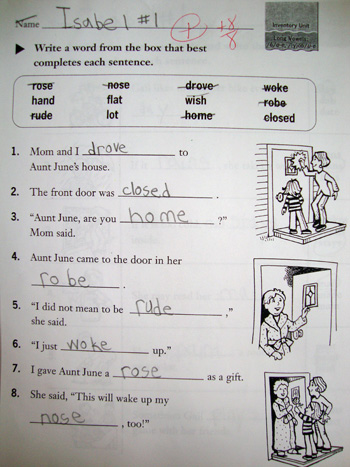 Name Isabel #1
P +8/8
Inventory Unit
Long Vowels
Write a word from the box that best
completes each sentence.
rose nose drove woke
hand flat wish robe
rude lot home closed
1. Mom and I drove to
Aunt June's house.
2. The front door was closed .
3. "Aunt June, are you home ?"
Mom said.
4. Aunt June came to the door in her
robe .
5. "I did not mean to be rude ,"
she said.
6. "I just woke up."
7. I gave Aunt June a rose as a gift.
8. She said, "This will wake up my
nose , too!"